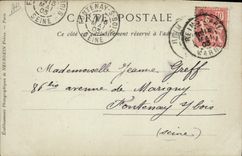 CARTE POSTALE
Ce côté est exclusivement réservé à l'adresse
FONTENAY-S-BOIS
SEINE
PARIS
Mademoiselle Jeanne Greff
86 bis avenue de Marigny
Fontenay s/ bois
(Seine)
Etablissements Photographiques de NEURDEIN Frères. — Paris